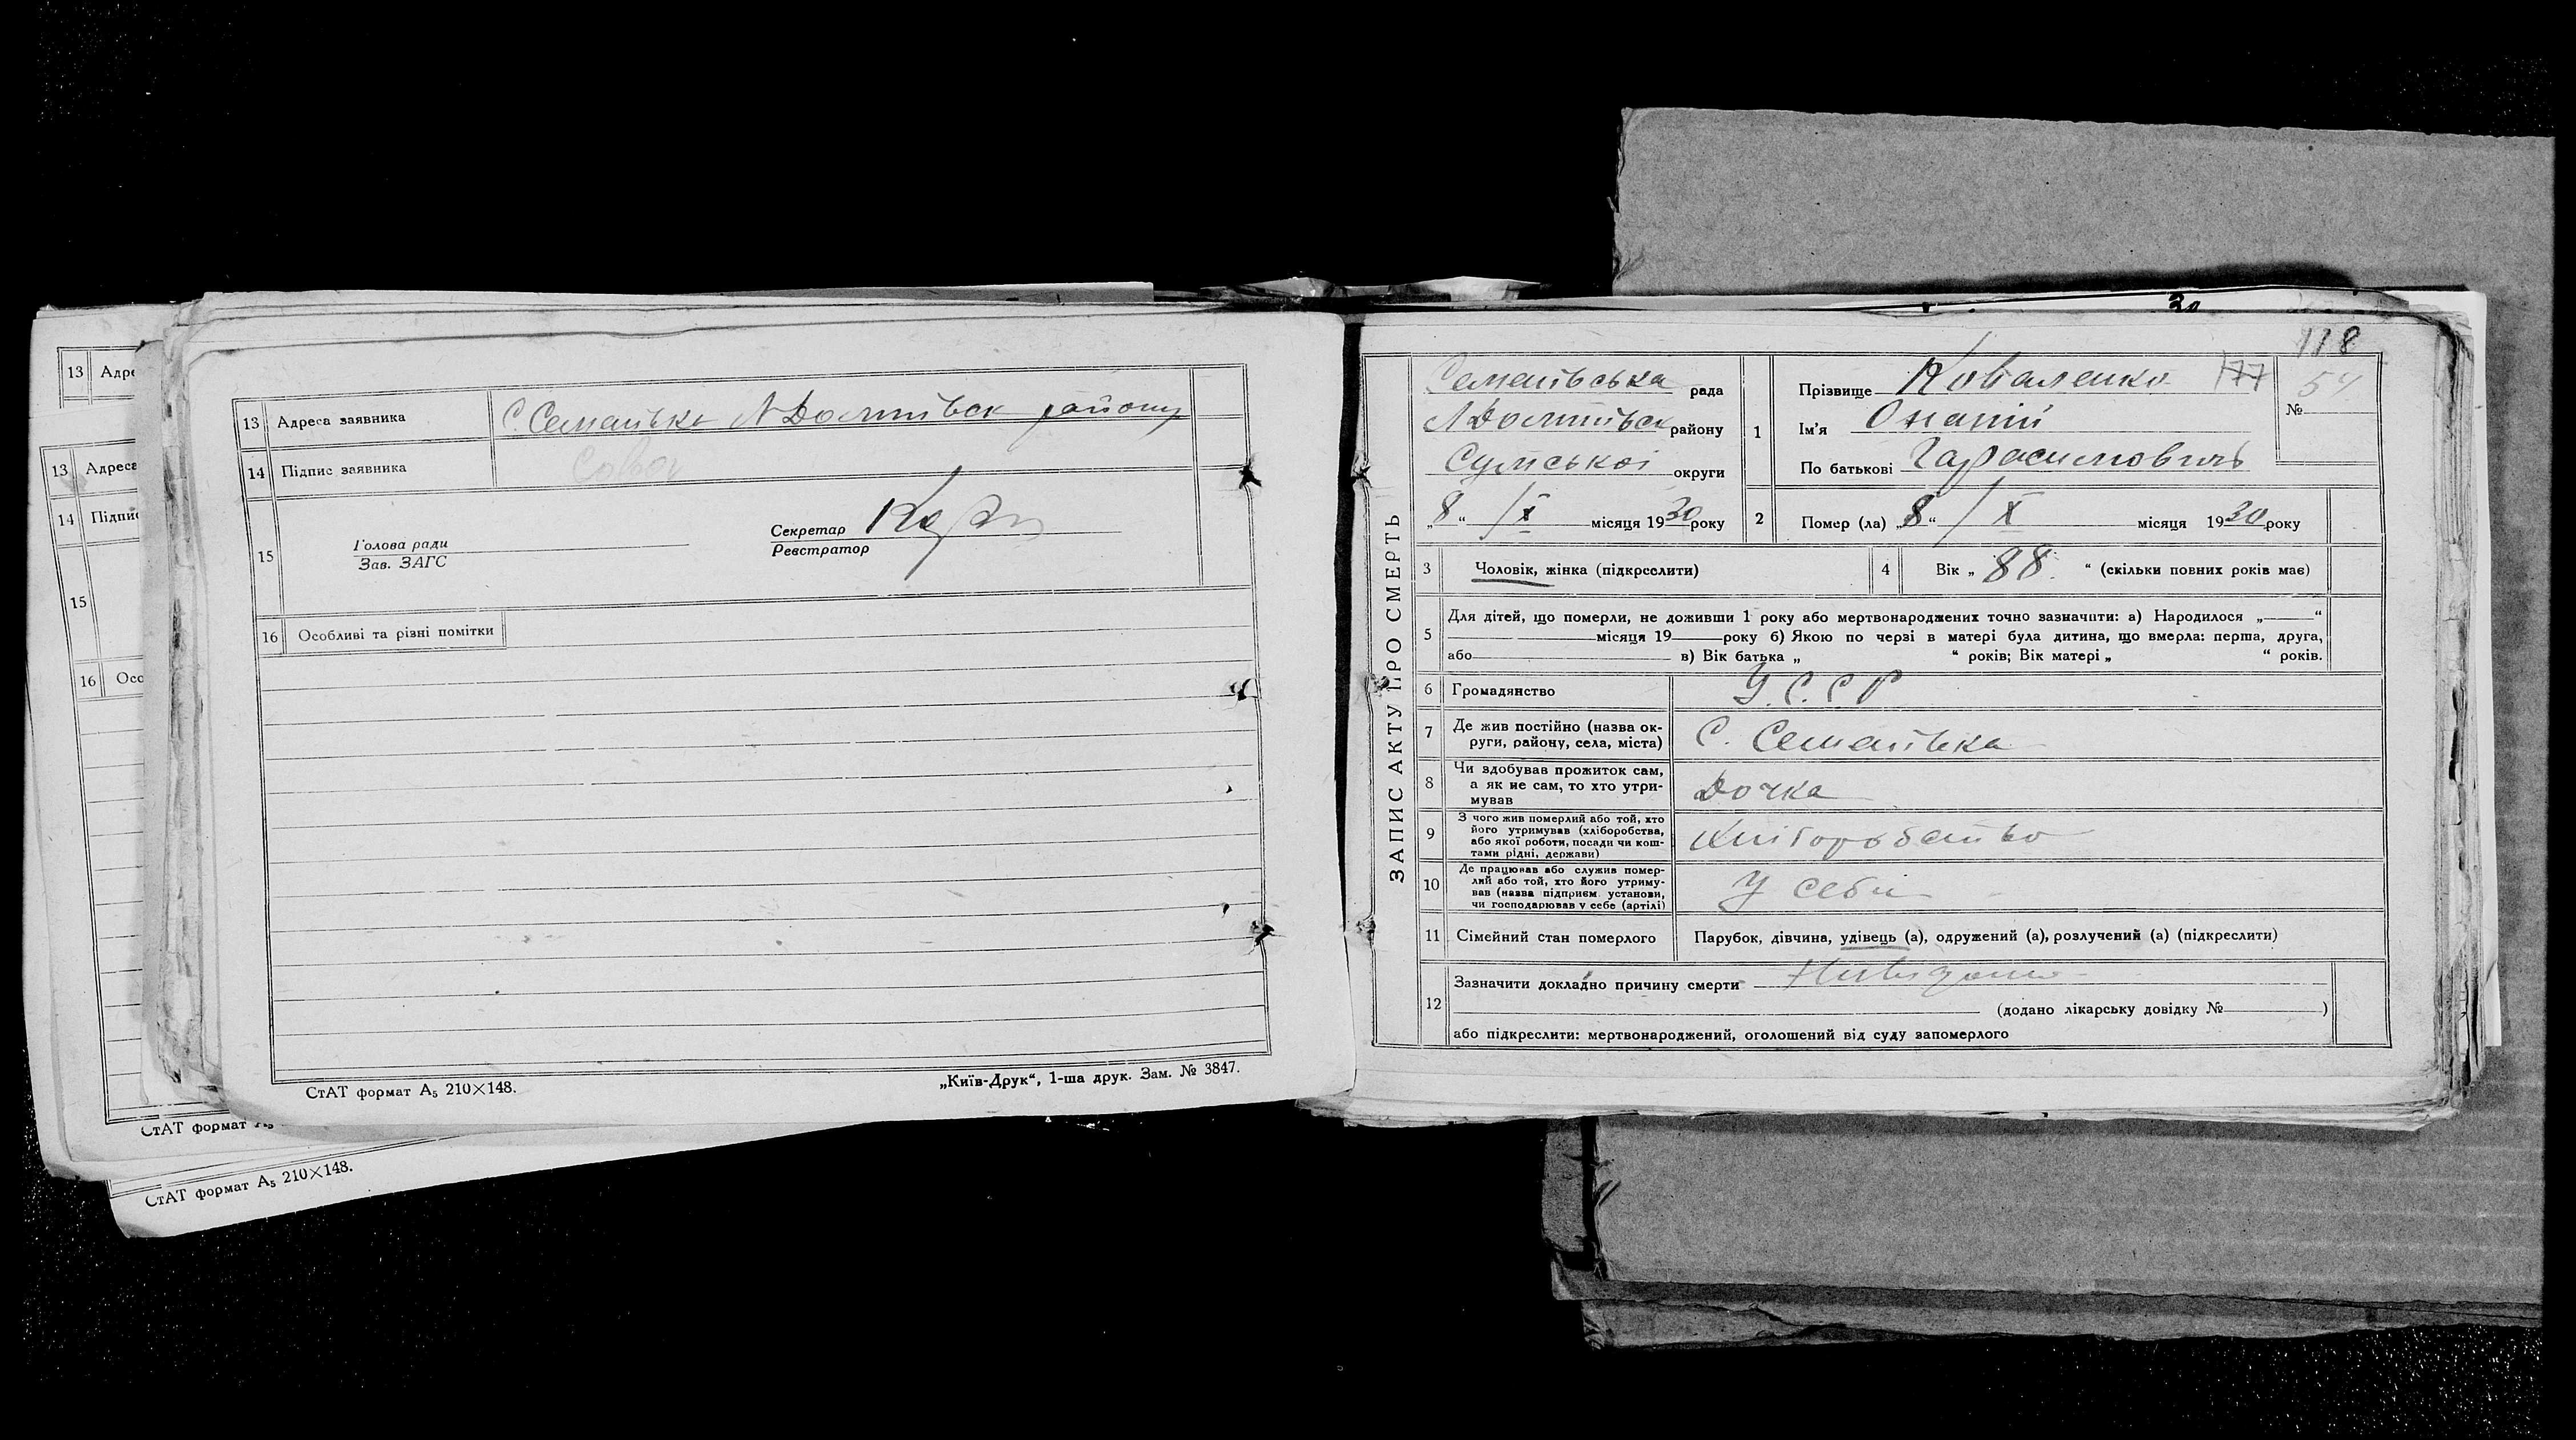 13 Адре
13 Адреса
14 Підпис
15
16 Осо
СтАТ формат А₅
СтАТ формат А₅ 210×148.
13 Адреса заявника С. Семенівка Н Долитівськ району
14 Підпис заявника
15 Голова ради
Зав. ЗАГС
Секретар
Реєстратор
16 Особливі та різні помітки
СтАТ формат А₅ 210×148.
„Київ-Друк“, 1-ша друк. Зам. № 3847.
30
118
177
ЗАПИС АКТУ ПРО СМЕРТЬ
Семенівська рада
району
Сумської округи
„8“ / X місяця 1930 року
1 Прізвище Коваленко
Ім'я Онаній
По батькові Гарасимовичь
№ 54
2 Помер (ла) „8“ / X місяця 1930 року
3 Чоловік, жінка (підкреслити)
4 Вік „88.“ (скільки повних років має)
5 Для дітей, що померли, не доживши 1 року або мертвонароджених точно зазначити: а) Народилося „ “
місяця 19 року б) Якою по черзі в матері була дитина, що вмерла: перша, друга,
або в) Вік батька „ “ років; Вік матері „ “ років.
6 Громадянство У.С.С.Р
7 Де жив постійно (назва ок-
руги, району, села, міста) С. Семенівка
8 Чи здобував прожиток сам,
а як не сам, то хто утри-
мував Дочка
9 З чого жив померлий або той, хто
його утримував (хліборобства,
або якої роботи, посади чи кош-
тами рідні, держави) Хліборобство
10 Де працював або служив помер-
лий або той, хто його утриму-
вав (назва підприєм. установи,
чи господарював у себе (артілі) У себе
11 Сімейний стан померлого Парубок, дівчина, удівець (а), одружений (а), розлучений (а) (підкреслити)
12 Зазначити докладно причину смерти Невідомо
(додано лікарську довідку № )
або підкреслити: мертвонароджений, оголошений від суду запомерлого